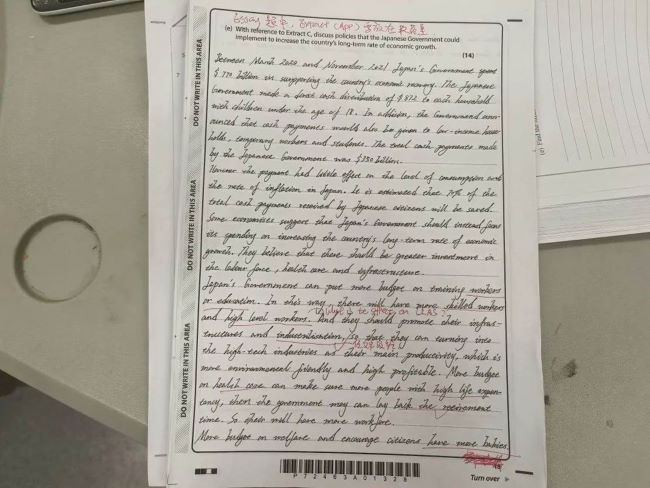 (e) With reference to Extract C, discuss policies that the Japanese Government could
implement to increase the country's long-term rate of economic growth.
(14)
Between March 2020 and November 2021 Japan's Government spent
$ 770 billion in supporting the country's economic recovery. The Japanese
Government made a direct cash distribution of $ 872 to each household
with children under the age of 18. In addition, the Government ann-
ounced that cash payments would also be given to low-income house-
holds, temporary workers and students. The total cash payments made
by the Japanese Government was $ 350 billion.
However the payment had little effect on the level of consumption and
the rate of inflation in Japan. It is estimated that 70% of the
total cash payments received by Japanese citizens will be saved.
Some economists suggest that Japan's Government should instead focus
its spending on increasing the country's long-term rate of economic
growth. They believe that there should be greater investment in
the labour force, health care and infrastructure.
Japan's Government can put more budget on training workers
or education. In this way, there will have more skilled workers
and high level workers. And they should promote their infras-
tructures and industrialisation, so that they can turning into
the high-tech industries as their main productivity, which is
more environmental friendly and high profitable. More budget
on health care can make sure more people with high life expec-
tancy, then the government may can lay back the retirement
time. So there will have more workforce.
More budget on welfare and encourage citizens have more babies.
Turn over
P72463A01328
DO NOT WRITE IN THIS AREA
DO NOT WRITE IN THIS AREA
DO NOT WRITE IN THIS AREA